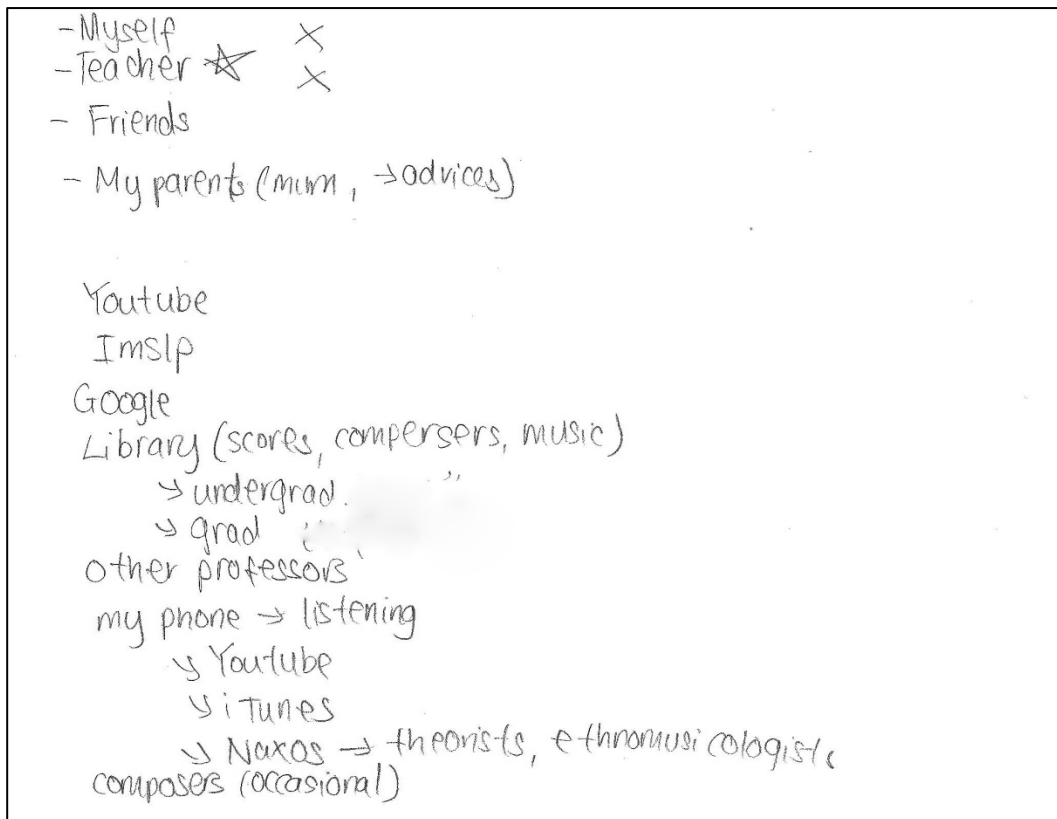 -Myself ×
-Teacher ☆ ×
- Friends
- My parents (mum, →advices)
Youtube
Imslp
Google
Library (scores, compersers, music)
↘ undergrad.
↘ grad
other professors
my phone → listening
↘ Youtube
↘ iTunes
↘ Naxos → theorists, ethnomusicologists
composers (occasional)